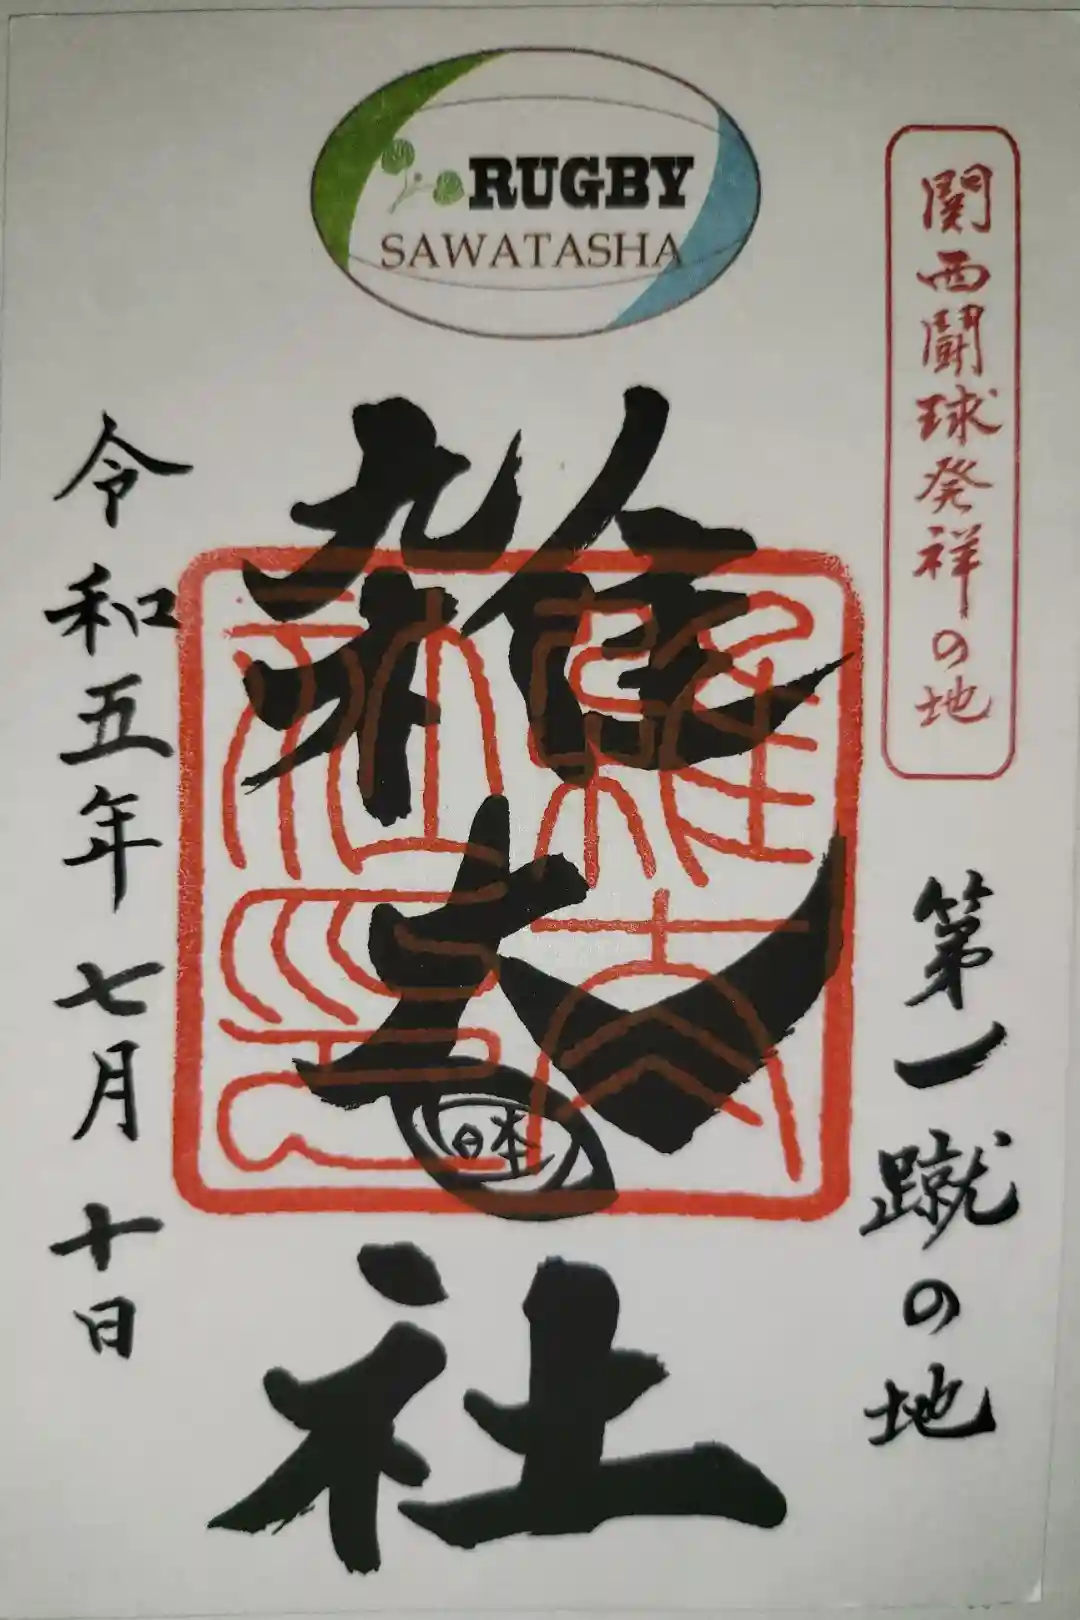 RUGBY
SAWATASHA
関西闘球発祥の地
第一蹴の地
雑太社
日本
令和五年七月十日